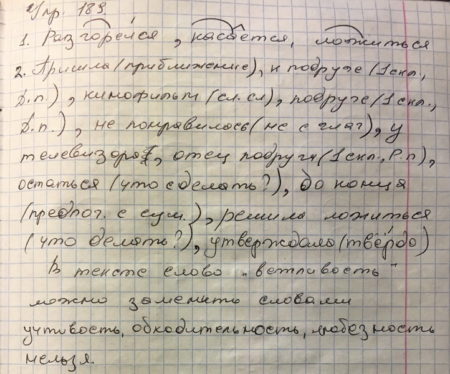 Упр. 189
1. Разгорелся, касается, ложиться
2. Пришла (приближение), к подруге (1 скл.,
Д.п.), кинофильм (сл. сл), подруге (1 скл.,
Д.п.), не понравилось (не с глаг), у
телевизора, отец подруги (1 скл., Р.п),
остаться (что сделать?), до конца
(предлог. с сущ.), решила ложиться
(что делать?), утверждала (твёрдо)
В тексте слово "ветливость"
можно заменить словами
учтивость, обходительность, любезность
нельзя.